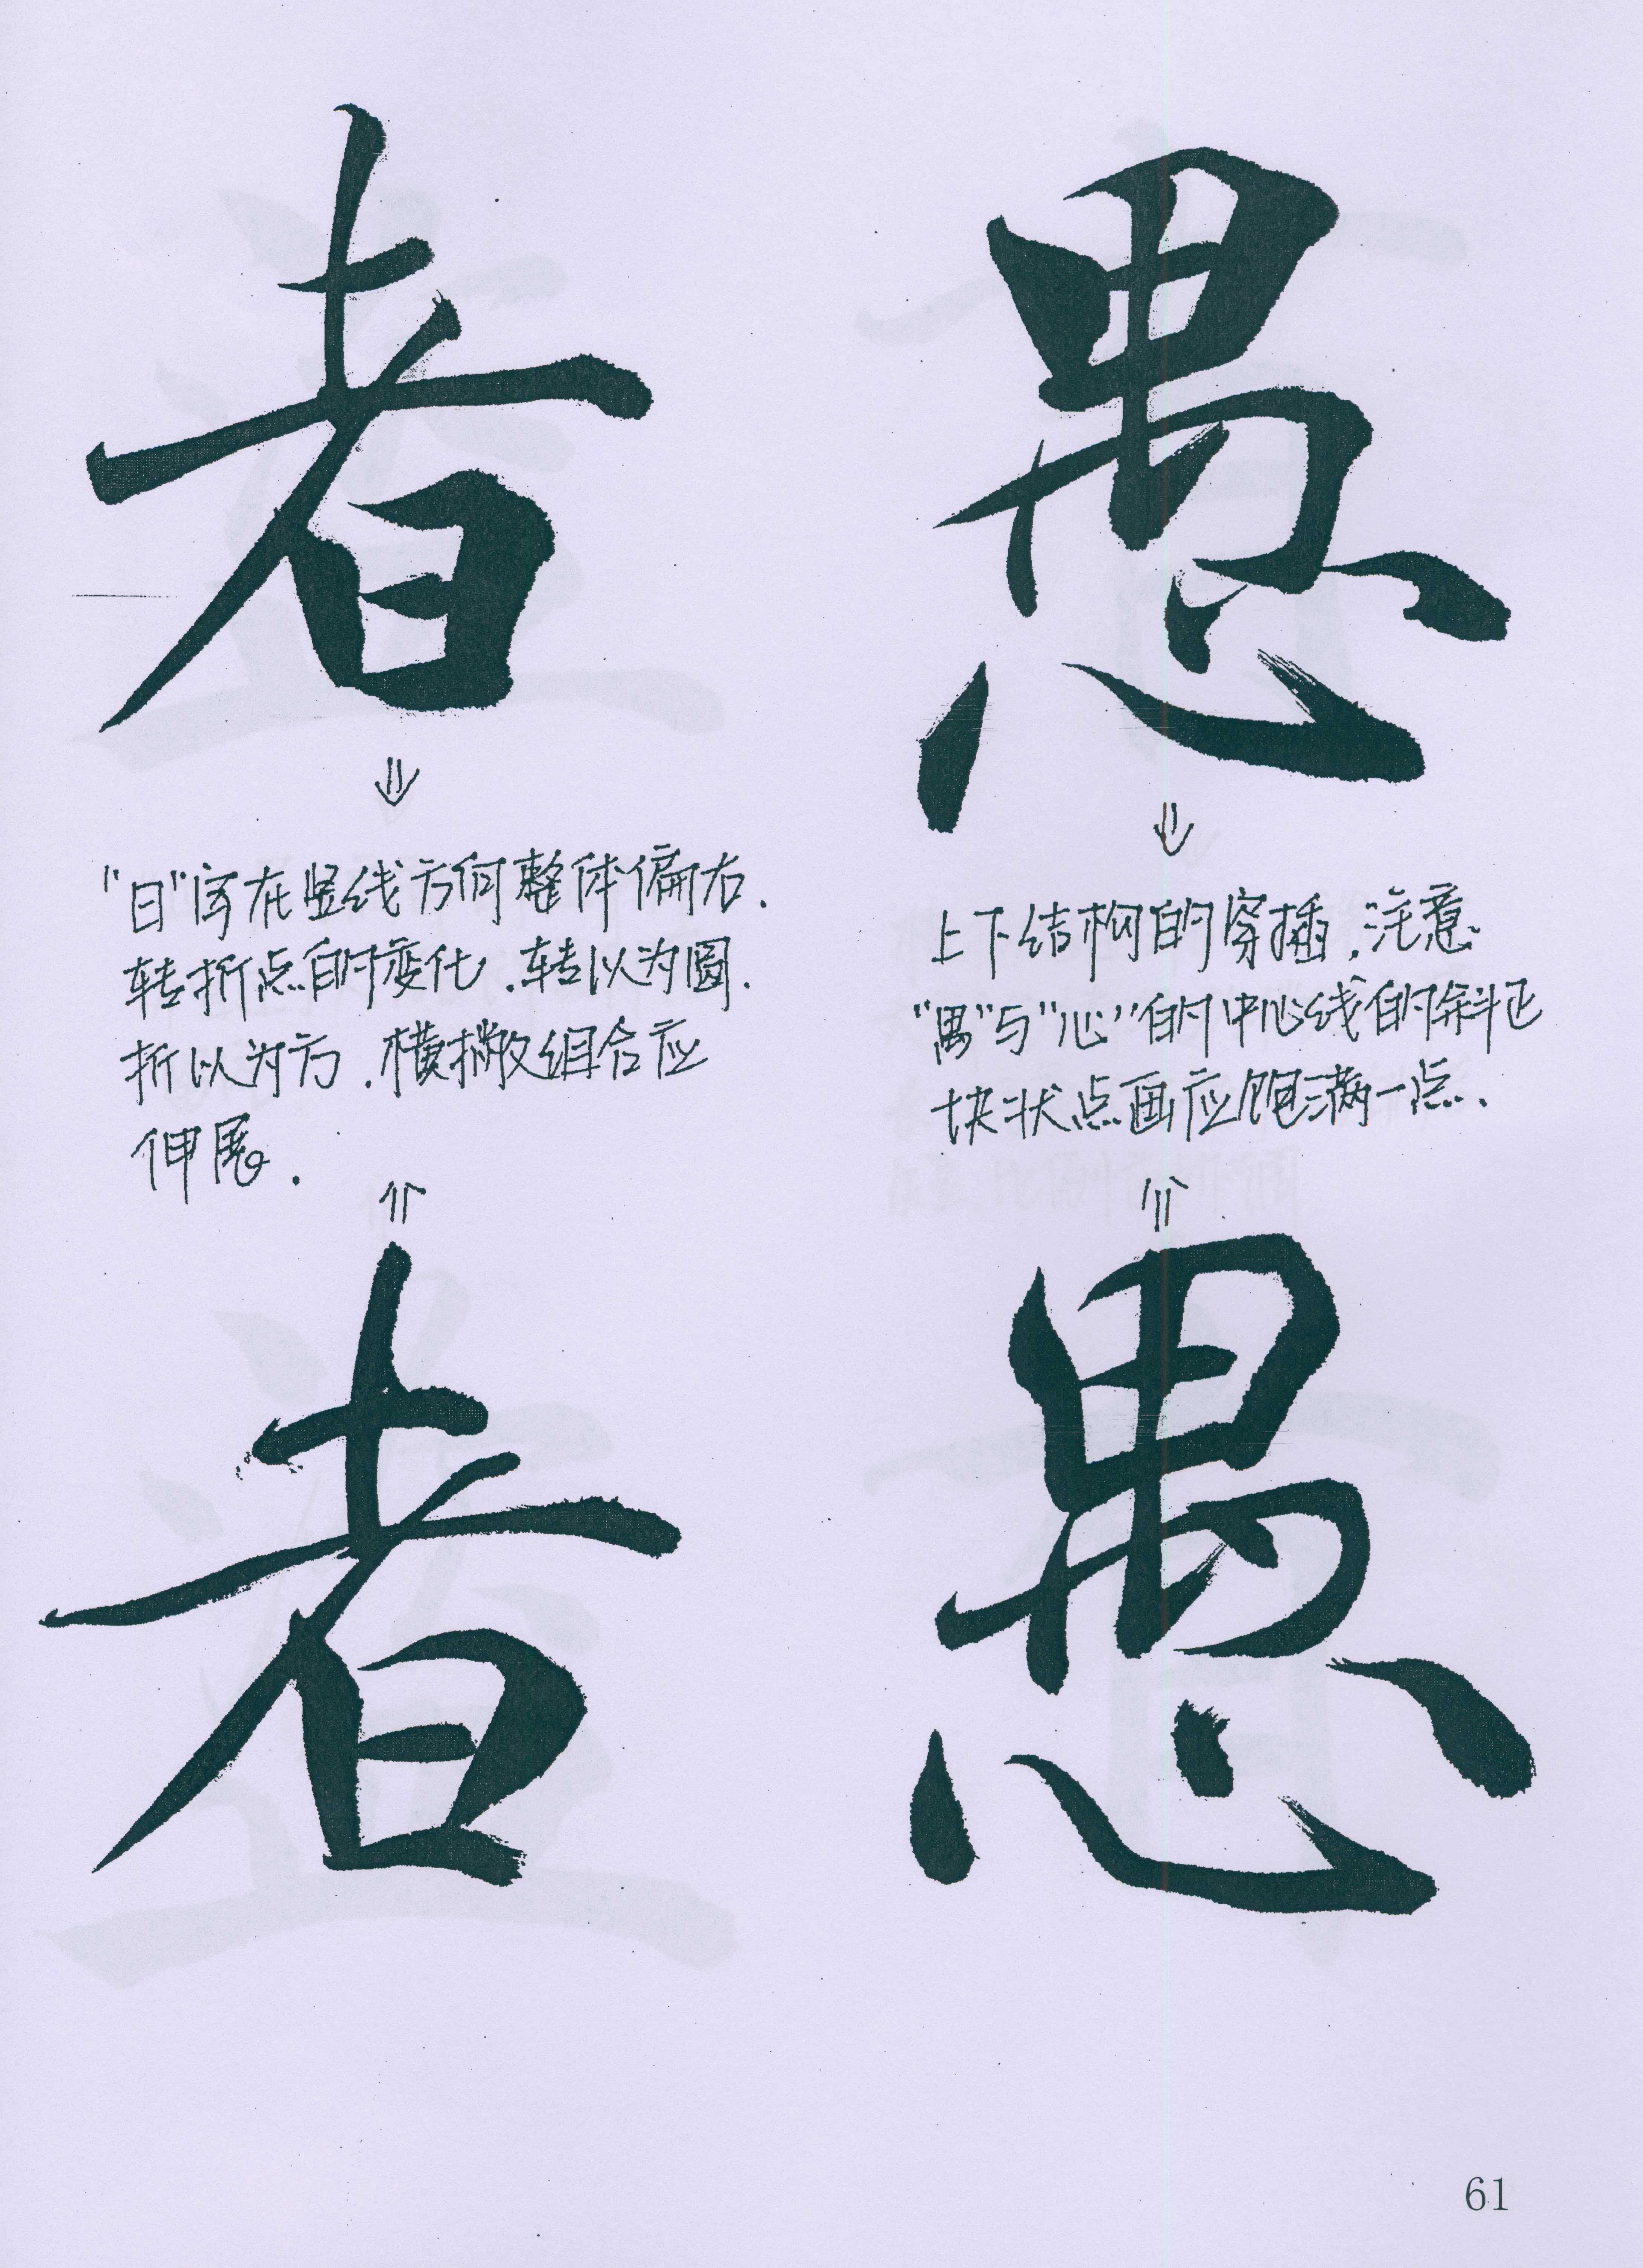 者
愚
"日"字在竖线方向整体偏右.
转折点的变化.转以为圆.
折以为方.横撇组合应
伸展.
上下结构的穿插.注意.
"禺"与"心"的中心线的斜正
块状点画应饱满一点.
者
愚
61